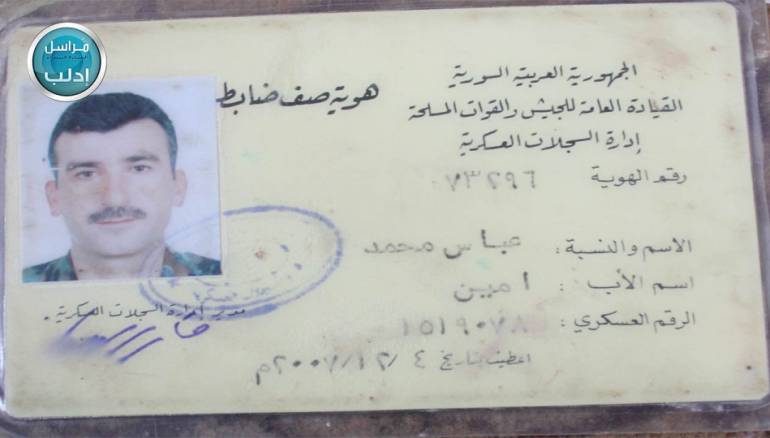 مراسل
إدلب
الجمهورية العربية السورية
هوية صف ضابط
القيادة العامة للجيش والقوات المسلحة
إدارة السجلات العسكرية
رقم الهوية ٠٧٣٢٩٦
الاسم والنسبة : عباس محمد
اسم الأب : امين
الرقم العسكري : ١٥١٩٠٧٨
مدير إدارة السجلات العسكرية .
اعطيت بتاريخ ٤ /١٢/ ٢٠٠٧م